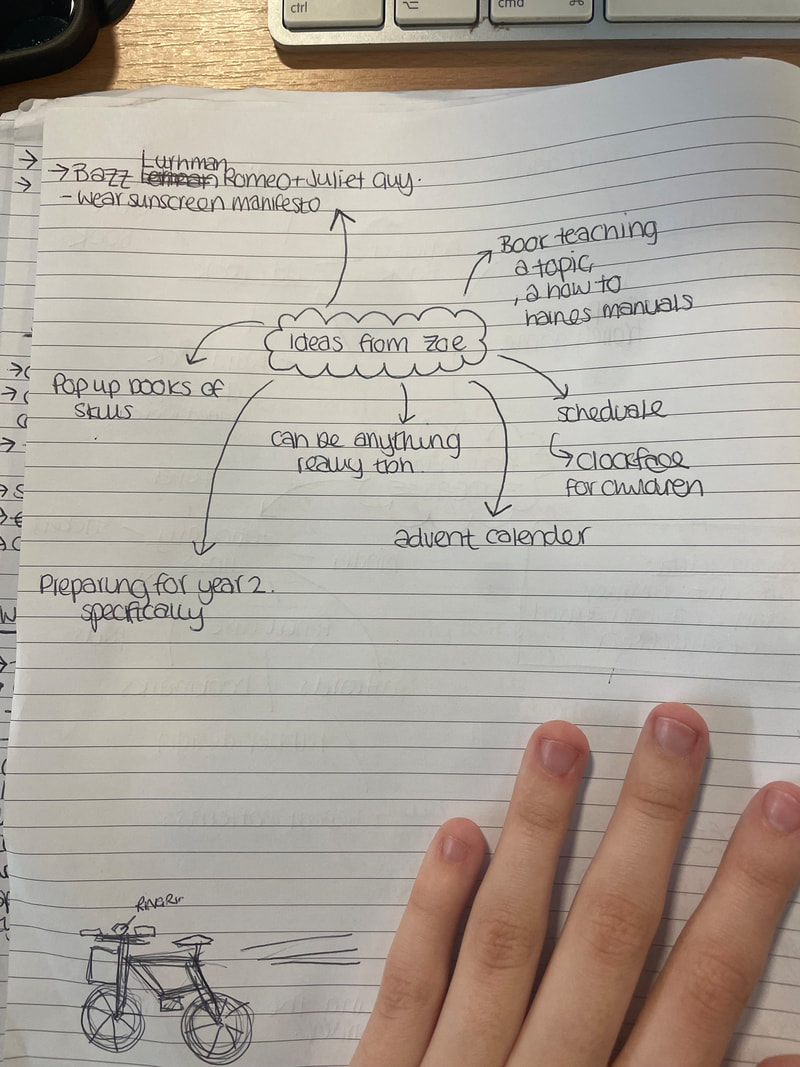 ctrl
⌥
cmd ⌘
→
→
→ Bazz Lurhman Romeo+Juliet guy.
- wear sunscreen manifesto
Book teaching
a topic,
, a how to
haines manuals
Ideas from zoe
Pop up books of
skills
can be anything
really tbh
scheduale
clockface
for children
advent calender
Preparing for year 2.
specifically